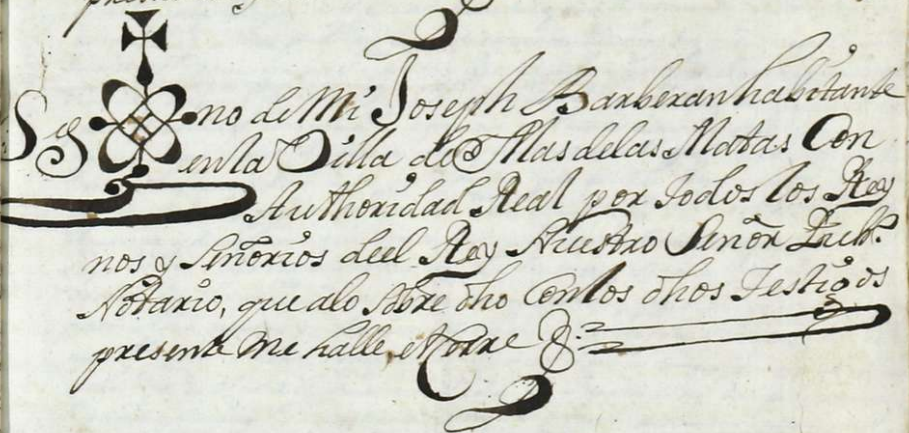 Sig no de Mi Joseph Barberan habitante
en la Villa de Mas de las Matas Con
Authoridad Real por todos los Rey
nos y Señorios deel Rey Nuestro Señor Pub.
Notario, que alo sobre dho Con los dhos Testigos
presente me halle, et Cerre